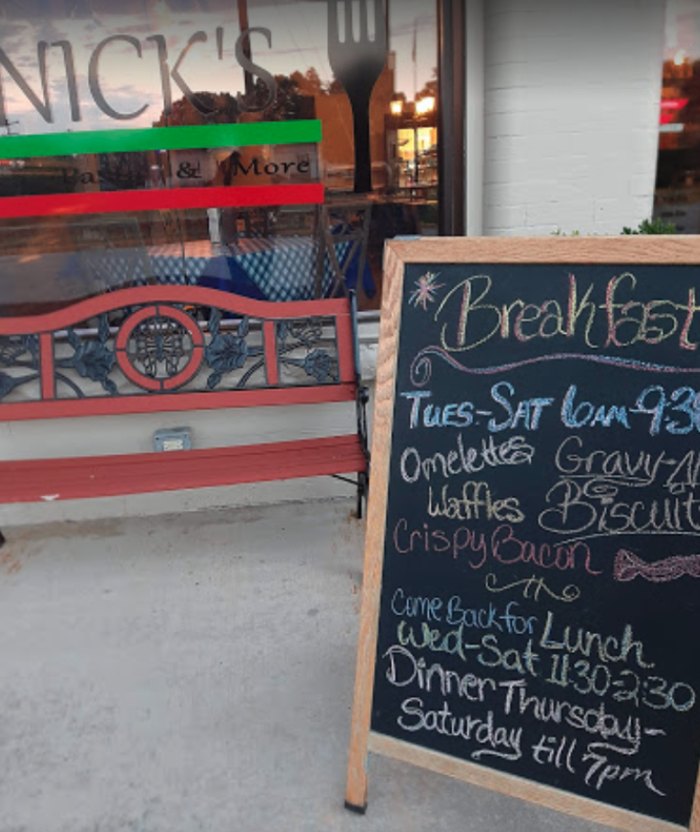 NICK'S
& More
Breakfast
TUES-SAT 6AM-9:30
Omelettes Gravy-N
Waffles Biscuit
Crispy Bacon
Come Back for Lunch
Wed-Sat 11:30-2:30
Dinner Thursday-
Saturday till 7pm